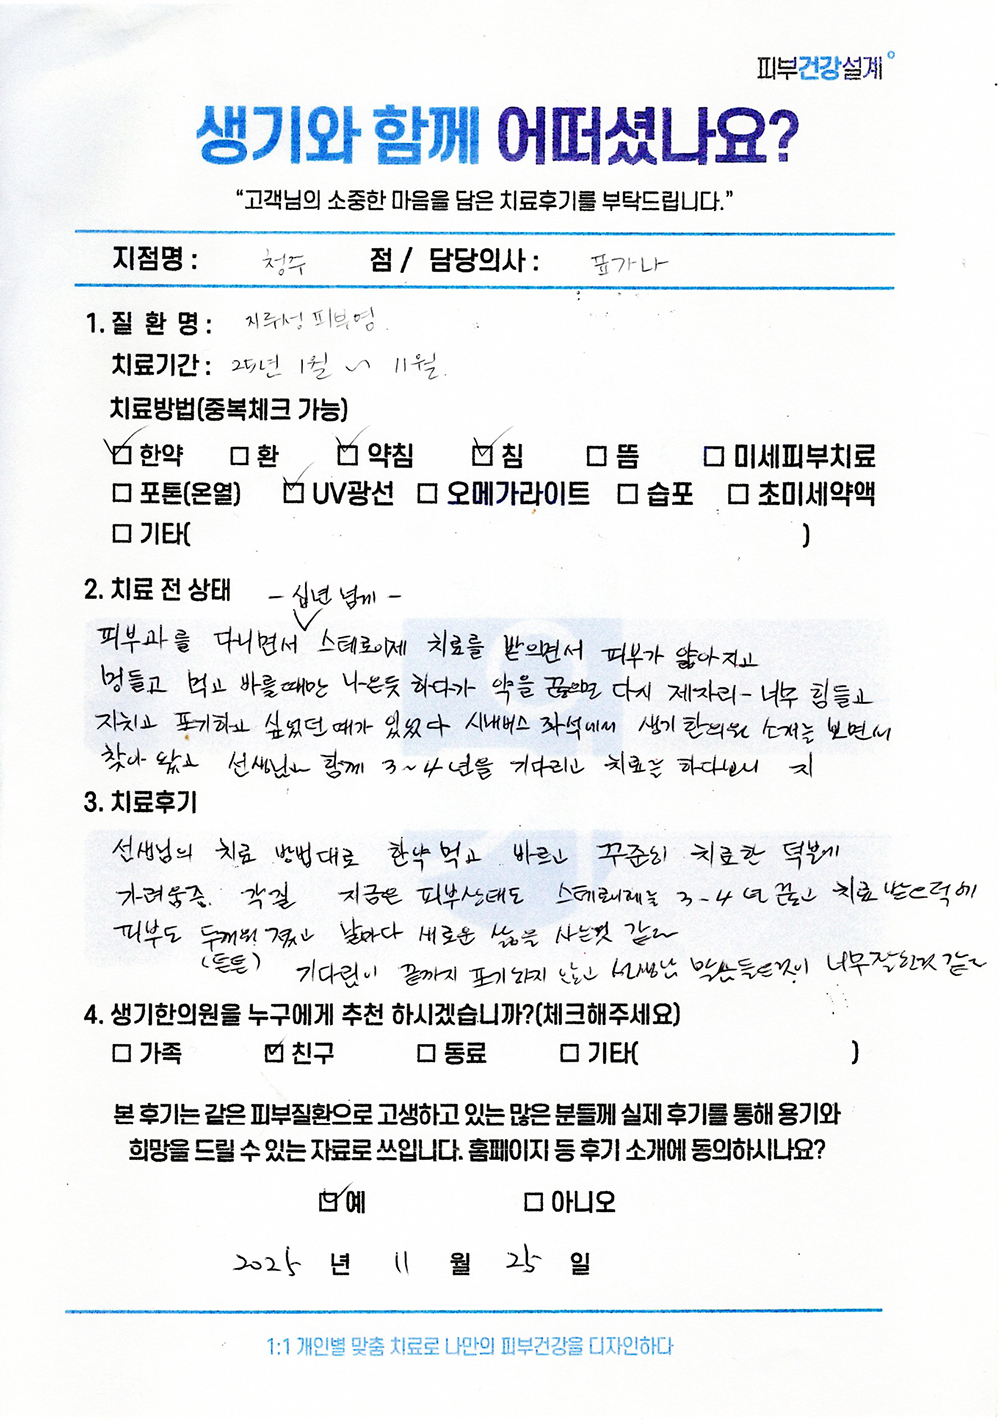 피부건강설계
생기와 함께 어떠셨나요?
“고객님의 소중한 마음을 담은 치료후기를 부탁드립니다.”
지점명 : 청주 점 / 담당의사 : 표가나
1. 질 환 명 : 지루성 피부염
치료기간 : 25년 1월 ~ 11월.
치료방법(중복체크 가능)
한약 환 약침 침 뜸 미세피부치료
포톤(온열) UV광선 오메가라이트 습포 초미세약액
기타( )
2. 치료 전 상태 - 십년 넘게 -
피부과를 다니면서 스테로이제 치료를 받으면서 피부가 얇아지고
멍들고 먹고 바를때만 나은듯 하다가 약을 끊으면 다시 제자리- 너무 힘들고
지치고 포기하고 싶었던 때가 있었다 시내버스 좌석에서 생기한의원 소개는 보면서
찾아 왔고 선생님과 함께 3~4년을 기다리고 치료는 하다보니 지
3. 치료후기
선생님의 치료 방법대로 한약 먹고 바르고 꾸준히 치료한 덕분에
가려움증. 각질 지금은 피부상태도 3~4년 끊고 치료
피부도 두꺼워 졌고 날마다 새로운 삶을 사는것 같다
(튼튼) 기다림이 끝까지 포기하지 않고 선생님 말씀들은것이 너무잘한것 같다
4. 생기한의원을 누구에게 추천 하시겠습니까?(체크해주세요)
가족 친구 동료 기타( )
본 후기는 같은 피부질환으로 고생하고 있는 많은 분들께 실제 후기를 통해 용기와
희망을 드릴 수 있는 자료로 쓰입니다. 홈페이지 등 후기 소개에 동의하시나요?
예 아니오
2025 년 11 월 25 일
1:1 개인별 맞춤 치료로 나만의 피부건강을 디자인하다